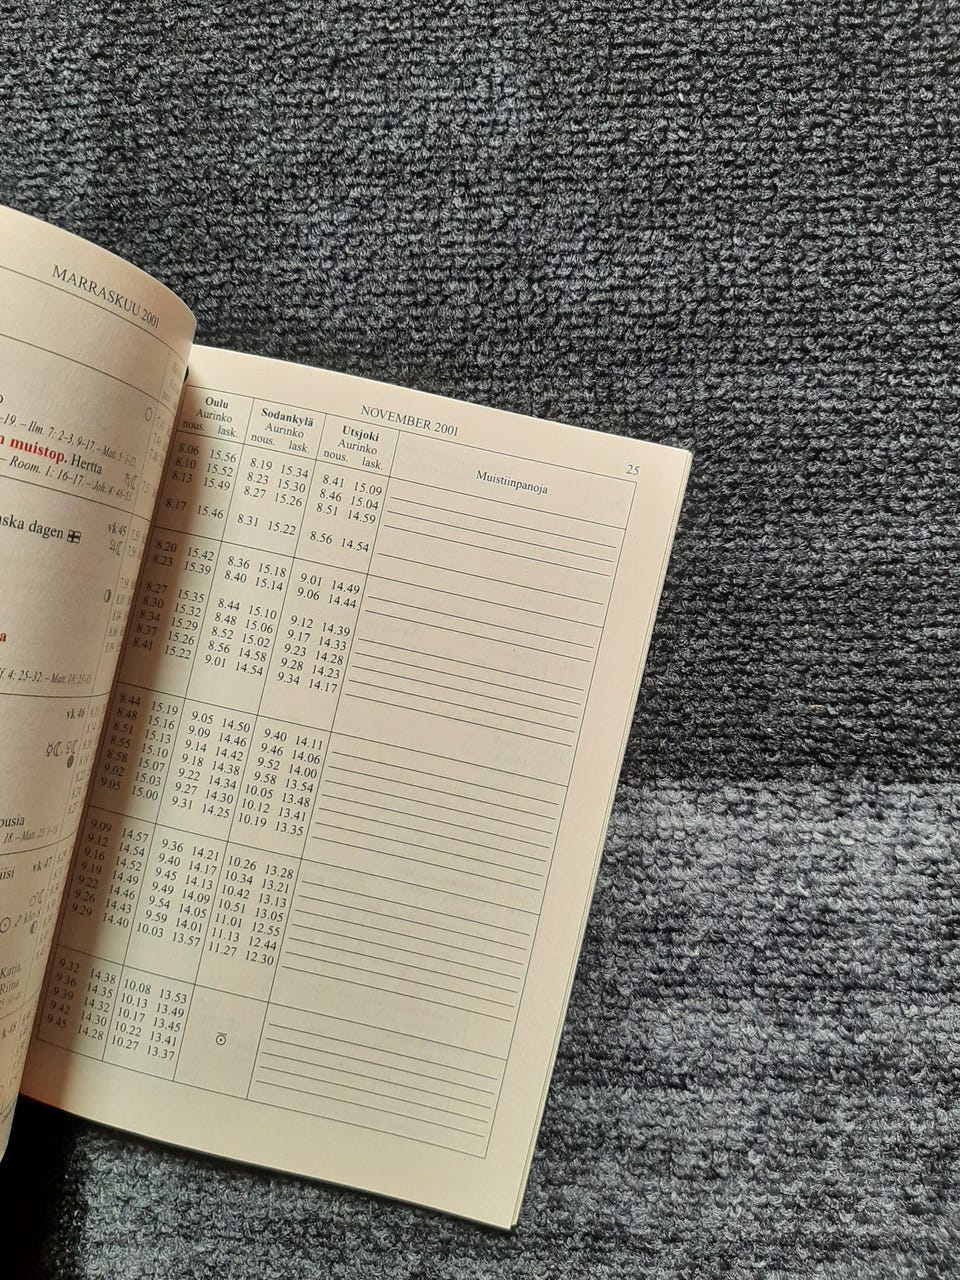 MARRASKUU 2001
–19. – Ilm. 7: 2–3, 9–17. – Matt. 5: 1–12
n muistop. Hertta
– Room. 1: 16–17. – Joh. 4: 46–53
ska dagen
vk 45
a
f. 4: 25–32. – Matt. 18: 23–35
vk 46
ousia
18. – Matt. 25: 1–13
iisi
vk 47
Katja,
Riina
k 48
NOVEMBER 2001
25
Oulu Sodankylä Utsjoki
Aurinko Aurinko Aurinko Muistiinpanoja
nous. lask. nous. lask. nous. lask.
8.06 15.56 8.19 15.34 8.41 15.09
8.10 15.52 8.23 15.30 8.46 15.04
8.13 15.49 8.27 15.26 8.51 14.59
8.17 15.46 8.31 15.22 8.56 14.54
8.20 15.42 8.36 15.18 9.01 14.49
8.23 15.39 8.40 15.14 9.06 14.44
8.27 15.35 8.44 15.10 9.12 14.39
8.30 15.32 8.48 15.06 9.17 14.33
8.34 15.29 8.52 15.02 9.23 14.28
8.37 15.26 8.56 14.58 9.28 14.23
8.41 15.22 9.01 14.54 9.34 14.17
8.44 15.19 9.05 14.50 9.40 14.11
8.48 15.16 9.09 14.46 9.46 14.06
8.51 15.13 9.14 14.42 9.52 14.00
8.55 15.10 9.18 14.38 9.58 13.54
8.58 15.07 9.22 14.34 10.05 13.48
9.02 15.03 9.27 14.30 10.12 13.41
9.05 15.00 9.31 14.25 10.19 13.35
9.09 14.57 9.36 14.21 10.26 13.28
9.12 14.54 9.40 14.17 10.34 13.21
9.16 14.52 9.45 14.13 10.42 13.13
9.19 14.49 9.49 14.09 10.51 13.05
9.22 14.46 9.54 14.05 11.01 12.55
9.26 14.43 9.59 14.01 11.13 12.44
9.29 14.40 10.03 13.57 11.27 12.30
9.32 14.38 10.08 13.53
9.36 14.35 10.13 13.49
9.39 14.32 10.17 13.45
9.42 14.30 10.22 13.41
9.45 14.28 10.27 13.37